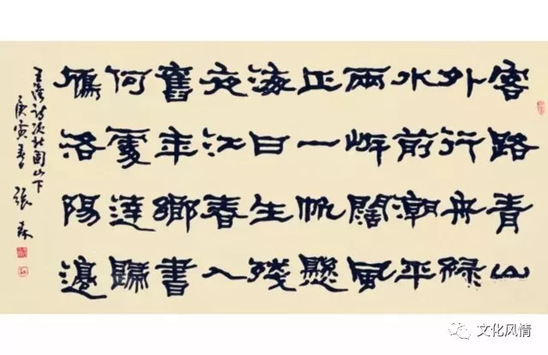 客路青山
外行舟緑
水前潮平
兩岸闊風
正一帆懸
海日生殘
夜江春入
舊年鄉書
何處達歸
雁洛陽邊
王灣詩次北固山下
庚寅春 張森
文化风情